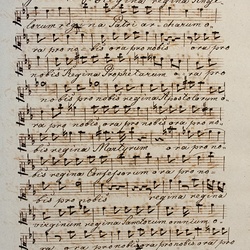 regina Ange
lorum regina Patri ar - charum o
ra pro no - bis ora pro nobis ora pro
nobis Regina Prophetarum ora pro
nobis pro nobis regina Apostolorum o
ra pro nobis ora pro no
bis regina Martyrum ora pro no
bis regina Confessorum ora pro no
bis pro nobis regina regina
virginum Sanctorum omnium o
ra pro nobis ora pro nobis ora pro